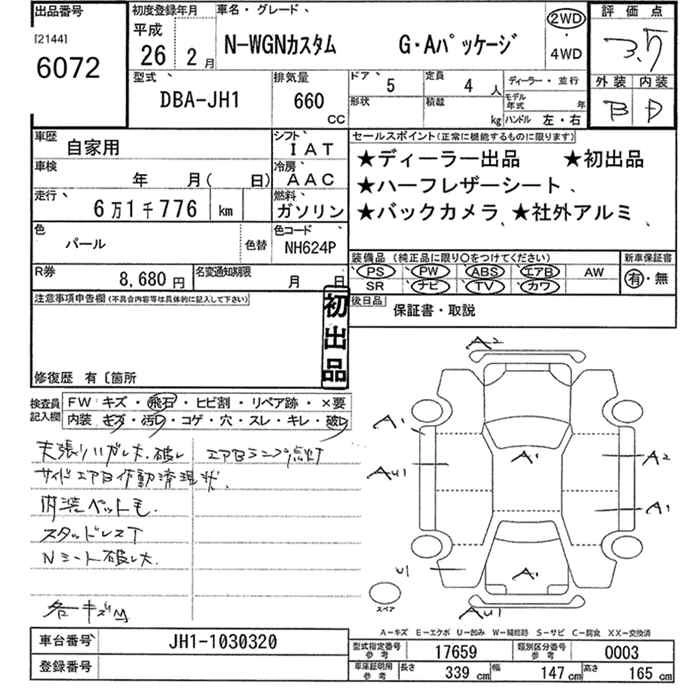 出品番号 初度登録年月 車名・グレード、 評価点
[2144] 平成 2WD
6072 26年 2月 N-WGNカスタム G・Aパッケージ ・ 3.5
4WD
型式 排気量 ドア 5 定員 4人 ディーラー・並行 外装 内装
DBA-JH1 660 CC 形状 積載 kg モデル年式 年 B D
ハンドル 左・右
車歴 自家用 シフト IAT セールスポイント(正常に機能するものに限ります)
車検 年 月( 日) 冷房 AAC ★ディーラー出品 ★初出品
走行 6万1千776 km 燃料 ガソリン ★ハーフレザーシート、
★バックカメラ、★社外アルミ
色 パール 色替 色コード NH624P
装備品(純正品に限り○をつけてください) 新車保証書
R券 8,680円 名変通知期限 月 日 PS PW ABS エアB AW 有・無
SR ナビ TV カワ
注意事項申告欄(不具合内容等は具体的に記入して下さい) 初出品 後日品 保証書・取説
修復歴 有〔箇所
検査員記入欄 FW キズ・飛石・ヒビ割・リペア跡・×要
内装 キズ・汚れ・コゲ・穴・スレ・キレ・破れ
天張りハガレ大.破レ エアBランプ点灯
サイドエアB作動済現状.
内装ペット毛.
スタッドレスT
Nシート破レ大.
各キズM
A2
A1 A1 A2
AU1 A1
U1 A1
スペア AU1
A-キズ E-エクボ U-凹み W-補修跡 S-サビ C-腐食 XX-交換済
車台番号 JH1-1030320 型式指定番号 参考 17659 類別区分番号 参考 0003
登録番号 車庫証明用 参考 長さ 339cm 幅 147cm 高さ 165cm